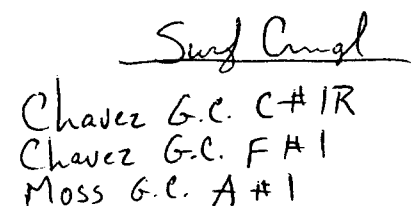 Surf Cmgl
Chavez G.C. C #1R
Chavez G.C. F #1
Moss G.C. A #1